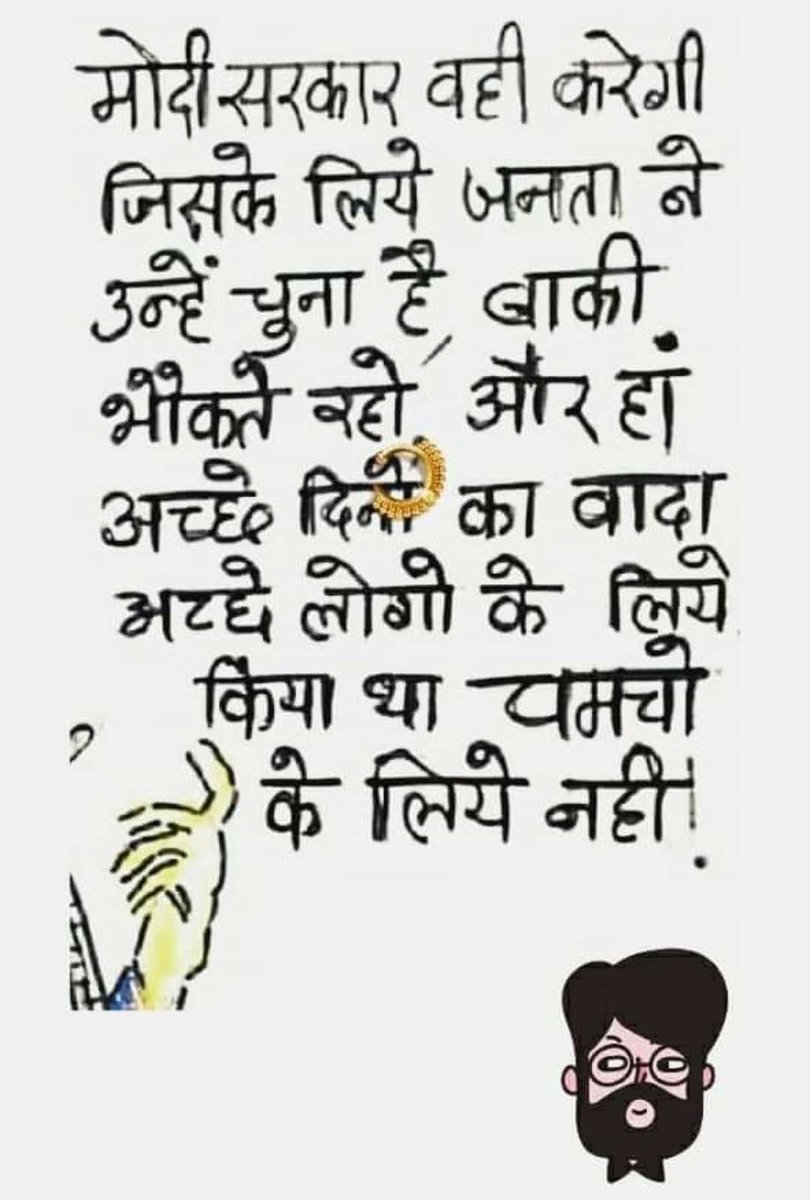 मोदी सरकार वही करेगी
जिसके लिये जनता ने
उन्हें चुना है, बाकी
भौकते रहो, और हां
अच्छे दिनो का वादा
अच्छे लोगो के लिये
किया था चमचो
के लिये नही!